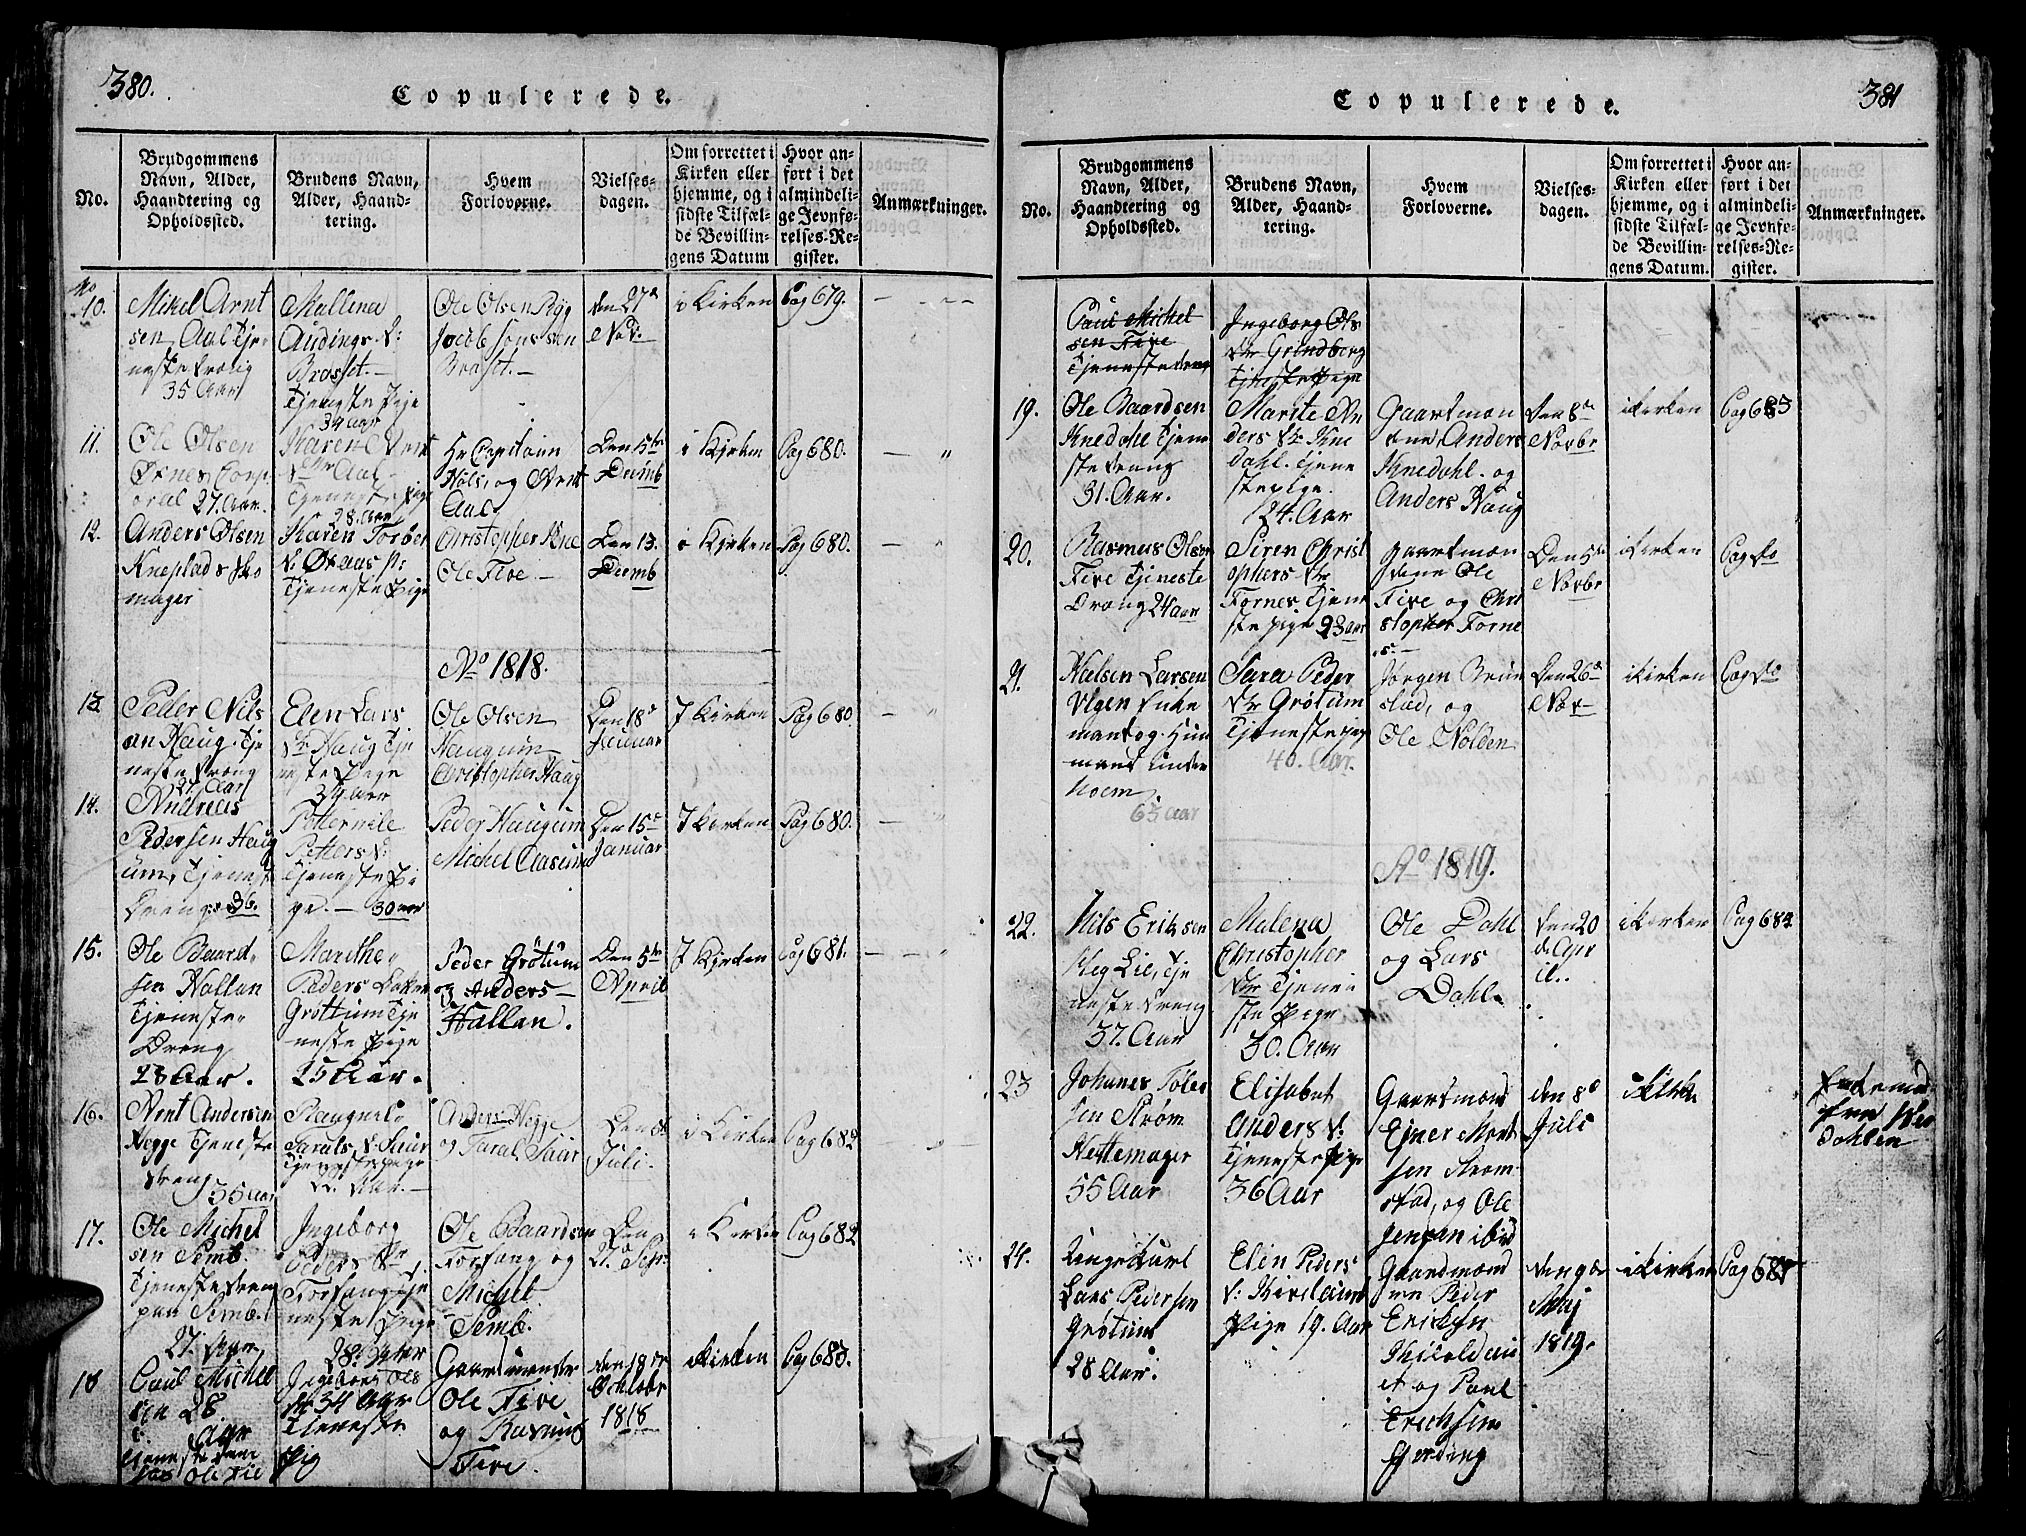 380.
Copulerede.
No.
Brudgommens
Navn, Alder,
Haandtering og
Opholdssted.
Brudens Navn,
Alder, Haand-
tering.
Hvem
Forloverne.
Vielses-
dagen.
Om forrettet i
Kirken eller
hjemme, og i
sidste Tilfæl-
de Bevillin-
gens Datum
Hvor an-
ført i det
almindeli-
ge Jevnfø-
relses-Re-
gister.
Anmærkninger.
No
10.
Mikel Arnt
sen Aal Tje-
neste
35 Aar
Mallena
Audings D:
Brasset.
Tjeneste Pige
34 aar
Ole Olsen Ryg
Jacob Jonssen
Brasset.
den 27de
Nov:
i Kirken
Pag 679.
11.
Ole Olsen
Ørnes Corp
oral 27. Aar.
Karen Arnt
Dtr Aal
Tjeneste pige
28. Aar
Hr Capitain
Nols, og Arnt
Aal
Den 5te
Decmb
i Kirken
Pag 680.
12.
Anders Olsen
Kneplads sko
mager
Karen Torber
D:
Tjeneste Pige
Christopher
Ole Five
Den 13.
Decmb
i Kirken
Pag 680.
No 1818.
13
Peder Nils
en Haug Tje
neste Dreng
27. Aar
Elen Lars
Dtr Haug Tje
neste Pige
34 aar
Ole Olsen
Haugum
Christopher Haug
Den 18de
Januar
I Kirken
Pag 680.
14.
Andreas
Pedersen Haug
um, Tjeneste
Dreng. 36.
Petternile
Petters D:
Tjeneste Pi
ge. 30 aar
Peder Haugum
Michel Aasum
Den 15de
Januar
I Kirken
Pag 680.
15.
Ole Baard-
sen Hallan
Tjeneste-
Dreng
28 Aar.
Marithe
Peders Datter
Grøttum Tje
neste Pige
25 Aar.
Peder Grøtum
og Anders
Hallan.
Den 5te
April
I Kirken
Pag 681.
16.
Arnt Andersen
Hegge Tjeneste
Dreng
35 Aar
Raagnel
Tarals D: Saur
Tjeneste Pige
22. Aar.
Anders Hegge
og Taral Saur
Den 8
Juli.
i Kirken
Pag 682
17.
Ole Michel
sen Semb.
Tjeneste Dreng
paa Semb.
27. Aar
Ingeborg
Peders Dr
Torfang Tje
neste Pige
28. Aar
Ole Baardsen
Torfang og
Michel
Semb.
Den
27. Sept.
i Kirken
Pag 682
18
Paul Michel
sen 28
Aar
tjeneste dreng
hos Ole Five
Ingeborg Ols
Dr 34 Aar
Tjeneste
Pig
Gaardmænder
Ole Five
og Rasmus
Five.
den 18de
October
1818
i Kirken
Pag 683.
381
Copulerede.
No.
Brudgommens
Navn, Alder,
Haandtering og
Opholdssted.
Brudens Navn,
Alder, Haand-
tering.
Hvem
Forloverne.
Vielses-
dagen.
Om forrettet i
Kirken eller
hjemme, og i
sidste Tilfæl-
de Bevillin-
gens Datum.
Hvor an-
ført i det
almindeli-
ge Jevnfø-
relses-Re-
gister.
Anmærkninger.
Paul Michel
sen Five
Tjeneste dreng
Ingeborg Ols
Dtr Grindberg
Tjeneste Pige
19.
Ole Baardsen
Knedahl Tjene
ste Dreng
31. Aar.
Marite An
ders Dtr Kne
dahl. Tjene
stepige.
24. Aar
Gaartmæn
dene, Anders
Knedahl. og
Anders Haug
Den 8de
Novbr
i Kirken
Pag 683
20.
Rasmus Olsen
Five Tjeneste
Dreng 24 Aar
Siren Christ
ophers Dtr
Fornes Tjene
ste pige 23 aar
gaartmæn
dene Ole
Five og Chri
stopher Forne
s.
Den 5te
Novbr
i Kirken
Pag do
21.
Nielsen Larsen
Vigen Enke
mand og Huus
mand under
Hoem.
63 Aar
Sara Peder
Dtr Grøtum
Tjeneste pige
40. Aar.
Jørgen Brun
stad, og
Ole Nolden
Den 26de
Nov
i Kirken
Pag do
Ao 1819.
22.
Nils Eriksen
Heg Lie, Tje
neste Dreng
37. Aar
Malena
Christopher
Dtr Tjene
ste Pige
30. Aar
Ole Dahl
og Lars
Dahl.
den 20
de Apr
il.
i Kirken
Pag 684.
23
Johanes
sen Strøm
Hattemager
55 Aar
Elisabet
Anders D:
Tjeneste Pige
36 Aar
Gaartmænd
Ejner Arnt
sen Strøm
stad, og Ole
Jensen ibid
den 8de
Juli
i Kirke
Enkemand
fra
dahlen
24.
Ungekarl
Lars Pedersen
Grøtum
28 Aar.
Elen Peders
D:
Pige 19. Aar
Gaardmænd
Peder
Erichsen
et og Paul
Erichsen
Gjerding
den
Maj
1819.
i Kirken
Pag 684